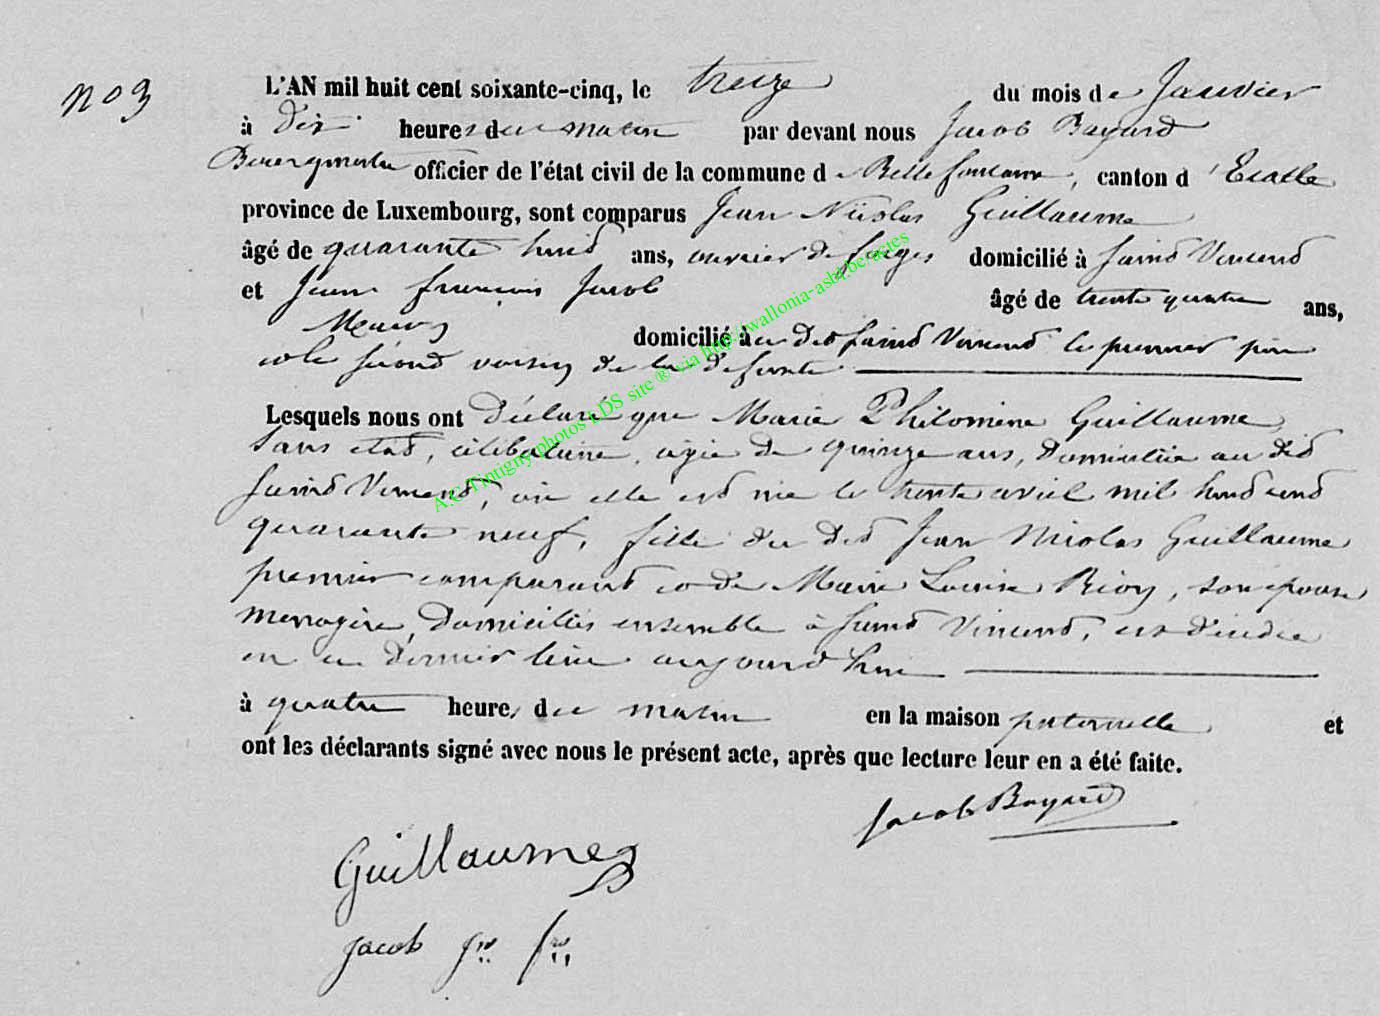 no 3
L'AN mil huit cent soixante-cinq, le treize du mois de Janvier
à dix heures du matin par devant nous Jacob Bayard
Bourgmestre officier de l'état civil de la commune de Bellefontaine, canton d'Etalle
province de Luxembourg, sont comparus Jean Nicolas Guillaume
âgé de quarante huit ans, ouvrier de forges domicilié à Saint Vincent
et Jean françois Jacob âgé de trente quatre ans,
domicilié au dit Saint Vincent le premier père
et le second voisin de la défunte
Lesquels nous ont Déclaré que Marie Philomène Guillaume,
sans état, célibataire, agée de quinze ans, Domiciliée au dit
Saint Vincent, où elle est née le trente avril mil huit cent
quarante neuf, fille du dit Jean Nicolas Guillaume
premier comparant et de Marie Louise Rion, son épouse
menagère, Domiciliés ensemble à Saint Vincent, est décédée
en ce dernier lieu aujourd'hui
à quatre heures du matin en la maison paternelle et
ont les déclarants signé avec nous le présent acte, après que lecture leur en a été faite.
Jacob Bayard
Guillaume
Jacob
A.C. Tintigny photos LDS site ® via http://wallonia-asbl.be/actes